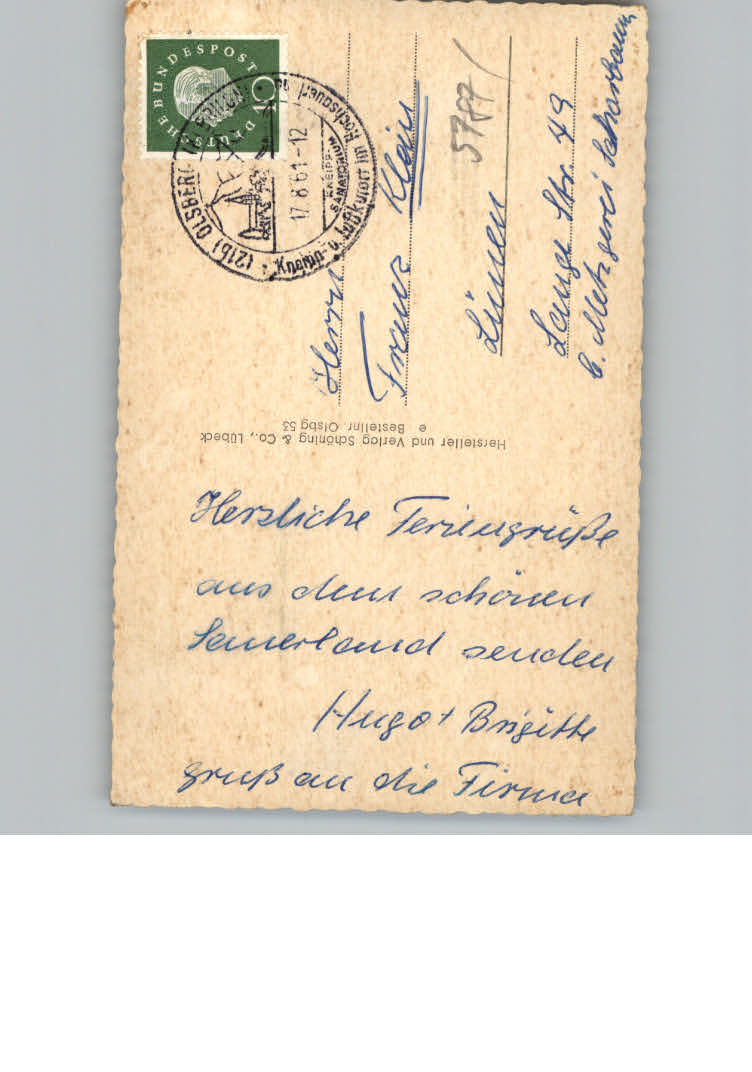 DEUTSCHE BUNDESPOST
10
(21b) OLSBERG
Kneipp- u. Luftkurort im Hochsauerland
17.8.61-12
KNEIPP-
SANATORIUM
Herrn
Franz Klein
5787/
Lünen
Lange Str. 49
b. Metzgerei
Hersteller und Verlag Schöning & Co., Lübeck
e Bestellnr. Olsbg 53
Herzliche Feriengrüße
aus dem schönen
Sauerland senden
Hugo + Brigitte
Gruß an die Firma